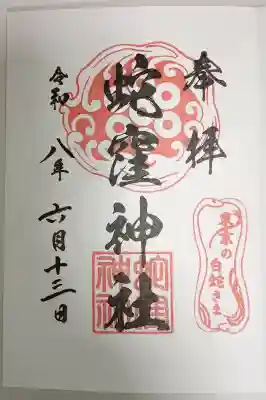 奉拝
東京の
白蛇さま
蛇窪神社
蛇窪
神社
令和八年六月十三日